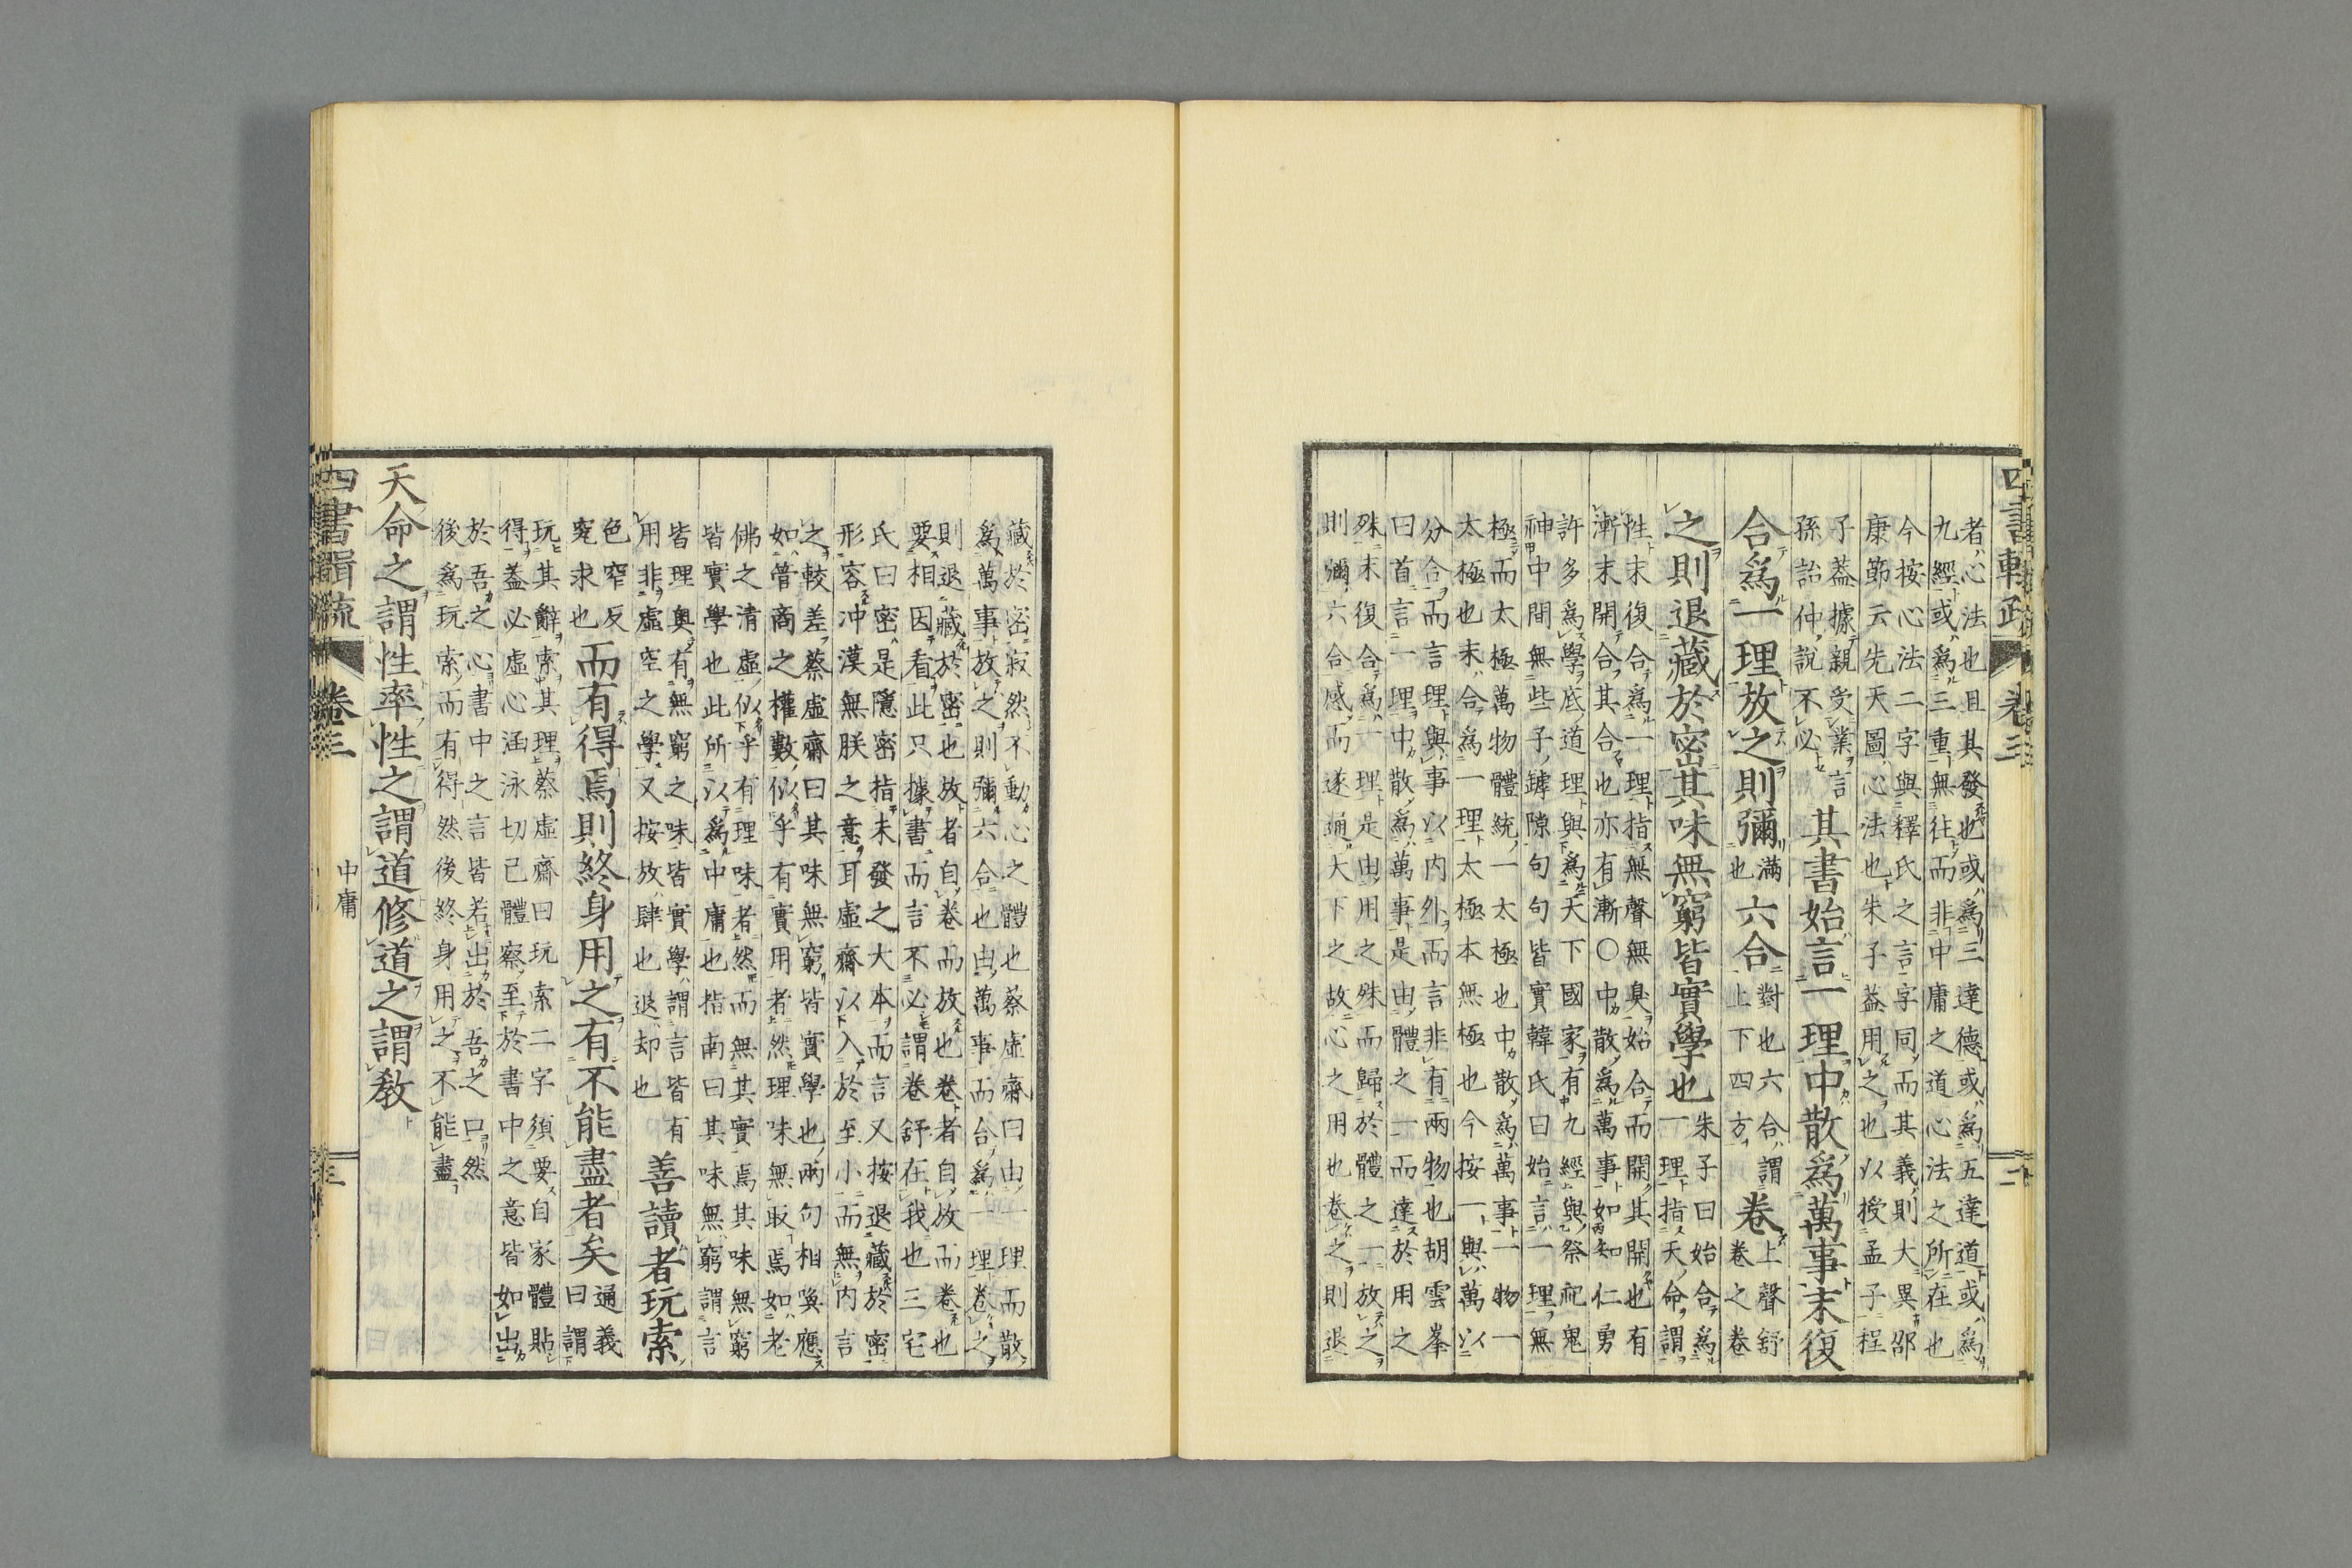 四書輯疏 卷三 二
者心法也且其發也或爲三達德或爲五達道或爲
九經或爲三重無往而非中庸之道心法之所在也
今按心法二字與釋氏之言字同而其義則大異邵
康節云先天圖心法也朱子蓋用之也以授孟子程
子蓋據親受業言
孫詒仲說不必
其書始言一理中散爲萬事末復
合爲一理放之則彌
滿
也
六合
對也六合謂
上下四方
卷
上聲舒
卷之卷
之則退藏於密其味無窮皆實學也
朱子曰始合爲
一理指天命謂
性末復合爲一理指無聲無臭始合而開其開也有
漸末開合其合也亦有漸〇中散爲萬事如知仁勇
許多爲學底道理與爲天下國家有九經與祭祀鬼
神中間無些子罅隙句句皆實韓氏曰始言一理無
極而太極萬物體統一太極也中散爲萬事一物一
太極也末合爲一理太極本無極也今按一與萬以
分合而言理與事以內外而言非有兩物也胡雲峯
曰首言一理中散爲萬事是由體之一而達於用之
殊末復合爲一理是由用之殊而歸於體之一放之
則彌六合感而遂通天下之故心之用也卷之則退
藏於密寂然不動心之體也蔡虛齋曰由一理而散
爲萬事放之則彌六合也由萬事而合爲一理卷之
則退藏於密也放者自卷而放也卷者自放而卷也
要相因看此只據書而言不必謂卷舒在我也三宅
氏曰密是隱密指未發之大本而言又按退藏於密
形容沖漠無朕之意耳虛齋以入於至小而無內言
之較差蔡虛齋曰其味無窮皆實學也兩句相喚應
如管商之權數似乎有實用者然理味無取焉如老
佛之清虛似乎有理味者然而無其實焉其味無窮
皆實學也此所以爲中庸也指南曰其味無窮謂言
皆理奧有無窮之味皆實學謂言皆有
用非虛空之學又按放肆也退却也
善讀者玩索
色窄反
究求也
而有得焉則終身用之有不能盡者矣
通義
曰謂
玩其辭索其理蔡虛齋曰玩索二字須要自家體貼
得蓋必虛心涵泳切己體察至於書中之意皆如出
於吾之心書中之言皆若出於吾之口然
後爲玩索而有得然後終身用之不能盡
天命之謂性率性之謂道修道之謂教
四書輯疏 卷三 中庸 三